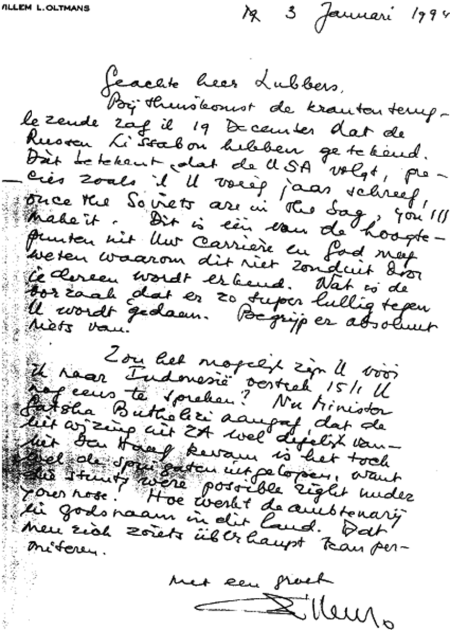 WILLEM L. OLTMANS
3 Januari 1994
Geachte heer Lubbers,
Bij thuiskomst de kranten terug-
lezende zag ik 19 December dat de
Russen Lissabon hebben getekend.
Dat betekent, dat de USA volgt, pre-
cies zoals ik U vorig jaar schreef,
once the Soviets are in the bag, you'll
make it. Dit is één van de hoogte-
punten uit Uw carriere en God mag
weten waarom dit niet zonduit door
iedereen wordt erkend. Wat is de
oorzaak dat er zo super lullig tegen
U wordt gedaan. Begrijp er absoluut
niets van.
Zou het mogelijk zijn U vóór
ik naar Indonesië vertrek 15/1 U
nog eens te spreken? Nu Minister
Gatsha Buthelezi aangaf, dat de
uitwijzing uit ZA wel degelijk van-
uit Den Haag kwam is het toch
wel de spuigaten uitgelopen, want
die stunts were possible right under
your nose! Hoe werkt de ambtenarij
in godsnaam in dit land. Dat
men zich zoiets überhaupt kan per-
miteren.
met een groet
Willem O.